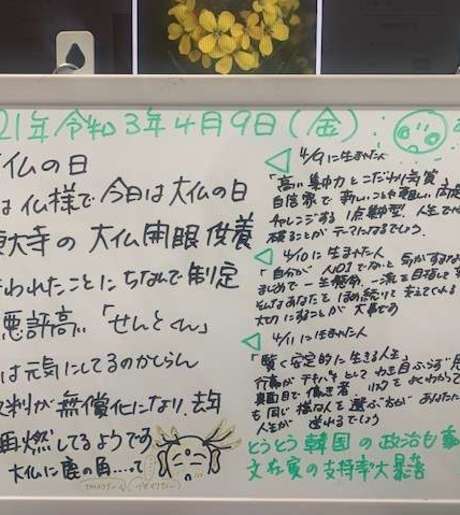 21年令和3年4月9日(金)
仏の日
は仏様で今日は大仏の日
大寺の大仏開眼供養
われたことにちなんで制定
悪評高い「せんとくん」
は元気にしてるのかしらん
判が無償化になり、去年
再燃してるようです
大仏に鹿の角…って
4/9に生まれた人
「高い集中力とこだわり気質」
自信家で新しいことや難しい
チャレンジする1点集中型 人生で
ることがテーマになるでしょう
4/10に生まれた人
「自分が人の1で
まじめで一生懸命 一流を目指して
そんなあなたを ほめ続けて 支えてくれる
大切にすることが 大事
4/11に生まれた人
「賢く安定的に生きる人生」
わき目ふらず
真面目で働き者
も同じ様な人を選ぶ方が あなた
人生が送れるでしょう
とうとう韓国の政治も
文在寅の支持率大暴落